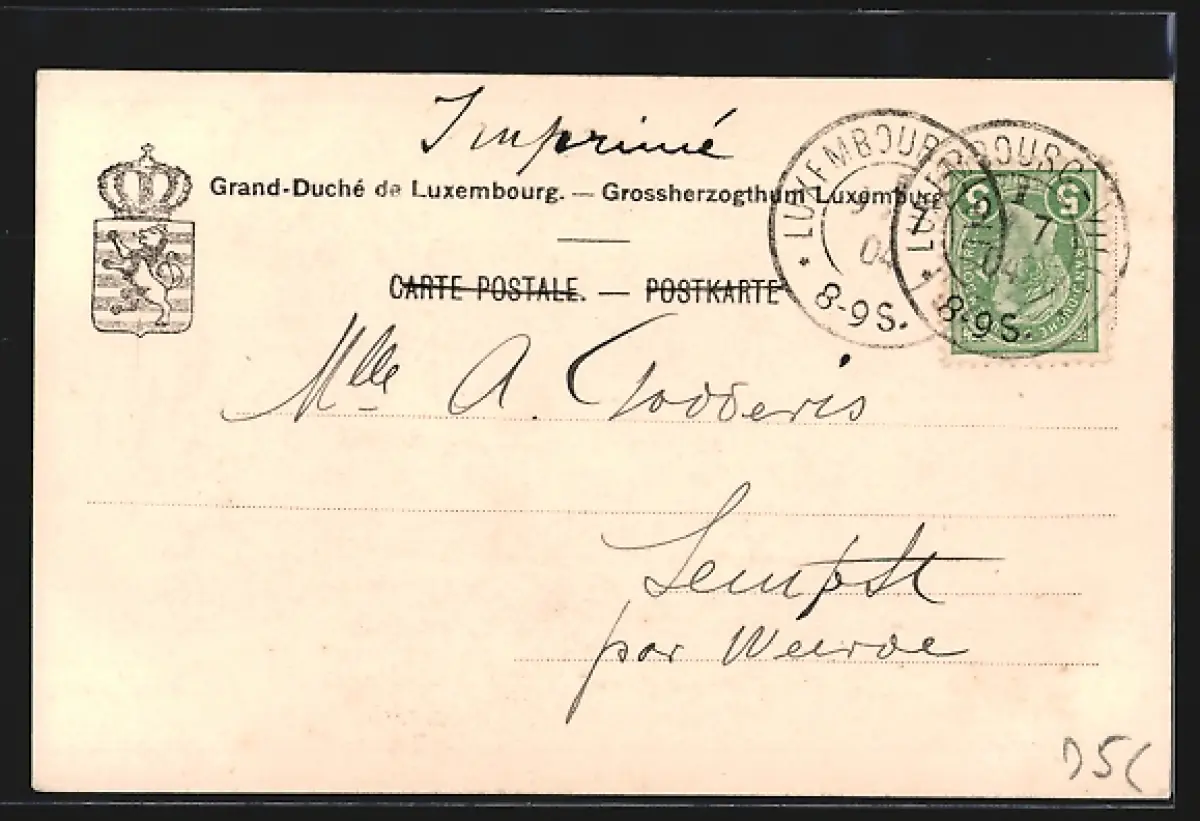 Imprimé
Grand-Duché de Luxembourg. — Grossherzogthum Luxemburg
CARTE POSTALE. — POSTKARTE
LUXEMBOURG
04
8-9S.
7
04
8-9S.
5 5
Mlle A. Godderis
Sempst
par Weerde
D5C